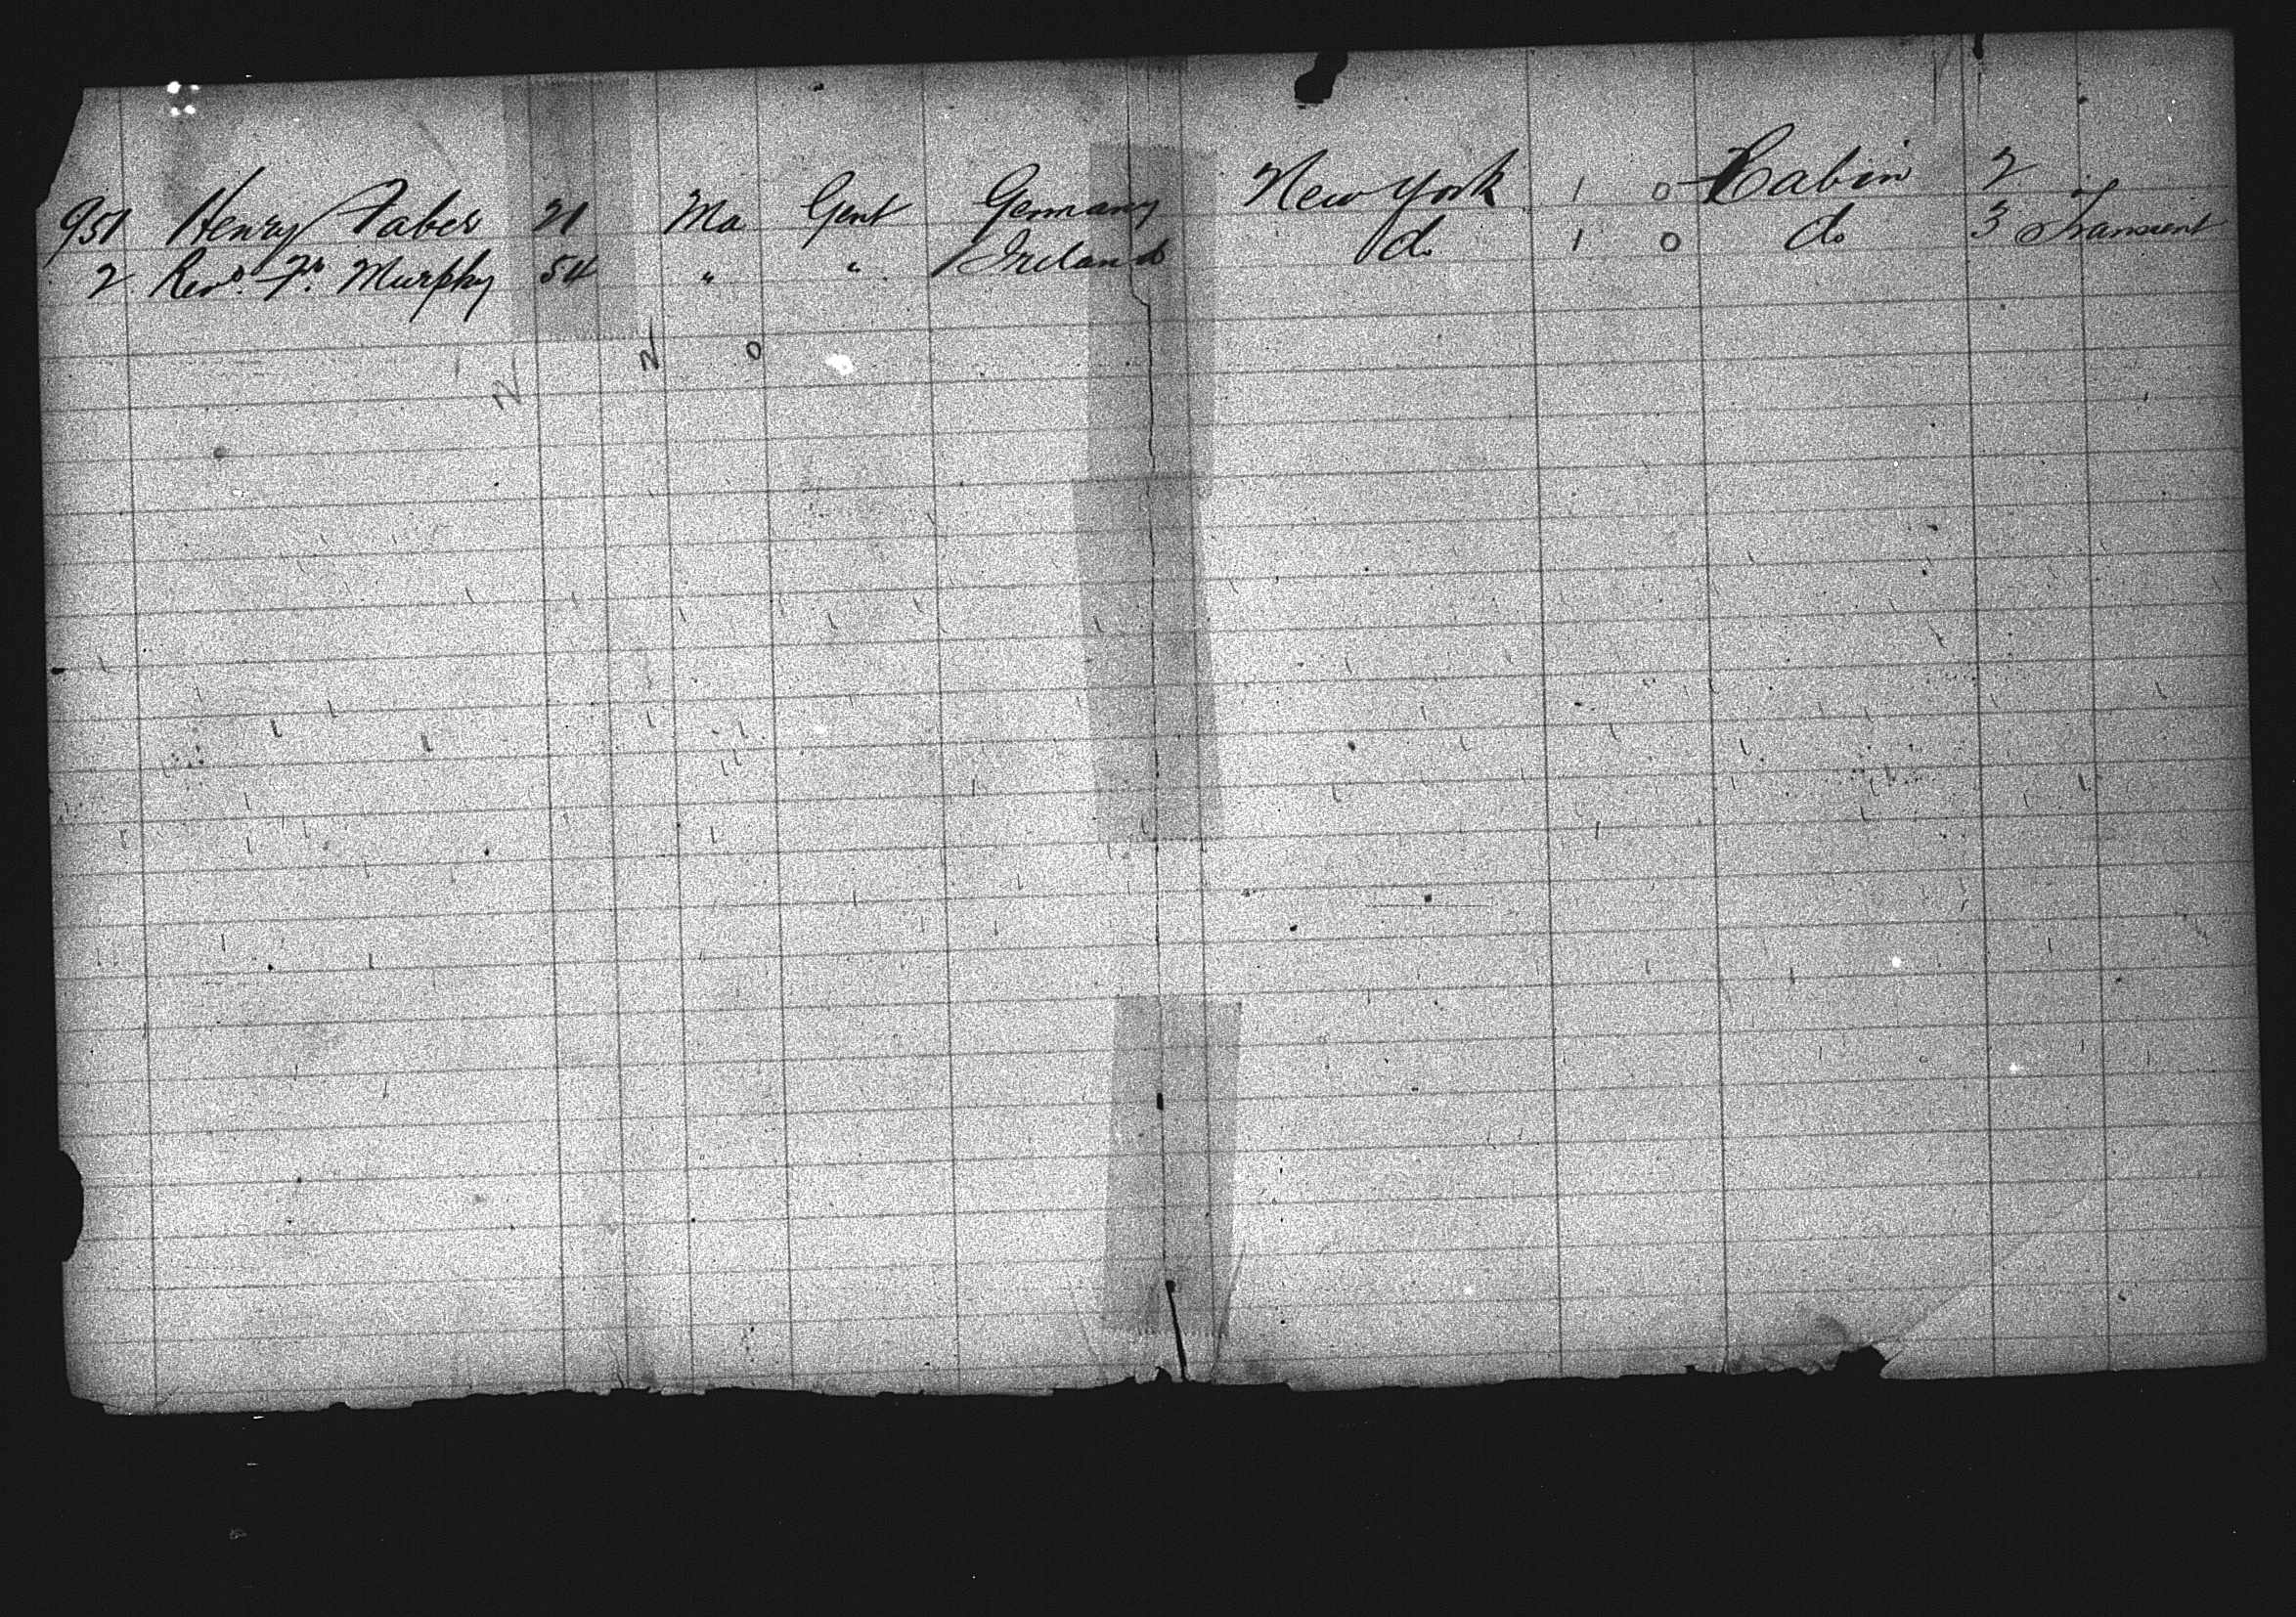 951 Henry Faber 21 Ma Gent Germany New York 1 0 Cabin 2
2 Revd. Fr. Murphy 54 " " Ireland do 1 0 do 3 Transient
N N 0